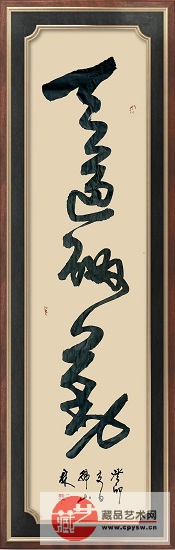 天道酬勤
癸卯
藏品艺术网
www.cpysw.cn